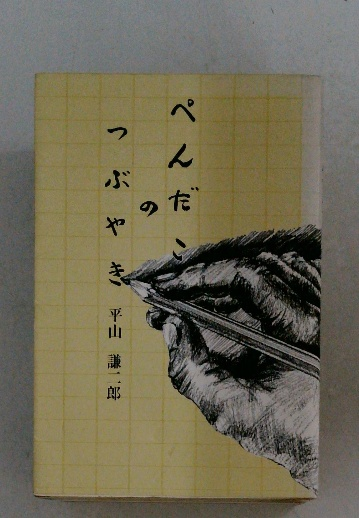 ぺんだこ
の
つぶやき
平山 謙二郎